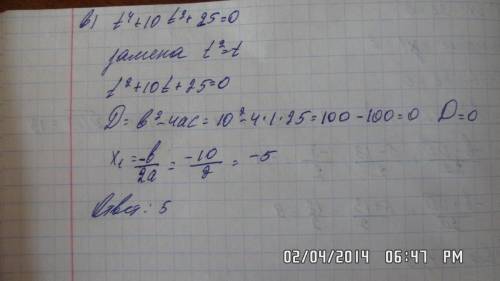 в) t⁴+10 t²+25=0
замена t²=t
t²+10t+25=0
D=в²-4ас=10²-4·1·25=100-100=0 D=0
x₁=-в/2a=-10/2=-5
Ответ: 5
02/04/2014 06:47 PM